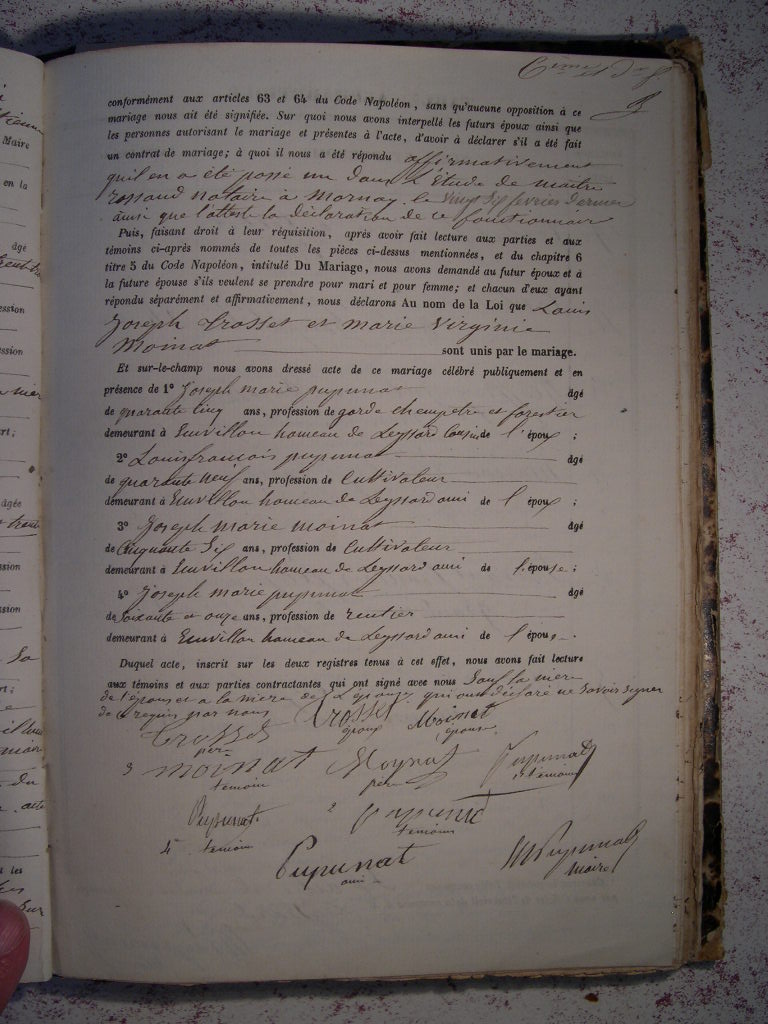 conformément aux articles 63 et 64 du Code Napoléon, sans qu'aucune opposition à ce
mariage nous ait été signifiée. Sur quoi nous avons interpellé les futurs époux ainsi que
les personnes autorisant le mariage et présentes à l'acte, d'avoir à déclarer s'il a été fait
un contrat de mariage; à quoi il nous a été répondu affirmativement
qu'il en a été passé un dans l'Étude de maître
notaire à mornay le vingt six fevrier dernier
ainsi que l'atteste la déclaration de ce fonctionnaire
Puis, faisant droit à leur réquisition, après avoir fait lecture aux parties et aux
témoins ci-après nommés de toutes les pièces ci-dessus mentionnées, et du chapitre 6
titre 5 du Code Napoléon, intitulé Du Mariage, nous avons demandé au futur époux et à
la future épouse s'ils veulent se prendre pour mari et pour femme; et chacun d'eux ayant
répondu séparément et affirmativement, nous déclarons Au nom de la Loi que Louis
Joseph Trosset et marie Virginie
Moinat sont unis par le mariage.
Et sur-le-champ nous avons dressé acte de ce mariage célébré publiquement et en
présence de 1° Joseph marie pupunat âgé
de quarante cinq ans, profession de garde champetre et forestier
demeurant à Senvillon hameau de Leyssard Cousin de l'époux ;
2° Louis francois pupunat âgé
de quarante neuf ans, profession de Cultivateur
demeurant à Senvillon hameau de Leyssard ami de l'époux ;
3° Joseph marie moinat âgé
de Cinquante Six ans, profession de Cultivateur
demeurant à Senvillon hameau de Leyssard ami de l'épouse ;
4° Joseph marie pupunat âgé
de Soixante et onze ans, profession de rentier
demeurant à Senvillon hameau de Leyssard ami de l'épouse.
Duquel acte, inscrit sur les deux registres tenus à cet effet, nous avons fait lecture
aux témoins et aux parties contractantes qui ont signé avec nous Sauf la mère
de l'épouse et la mère de l'époux qui ont déclaré ne savoir signer
de ce requis par nous Trosset Moinat
époux épouse
Trosset
père
3 moinat Moynat Pupunat
temoin père 1 temoin
Pupunat 2 Pupunat
4 temoin temoin
Pupunat Pupunat
ami maire